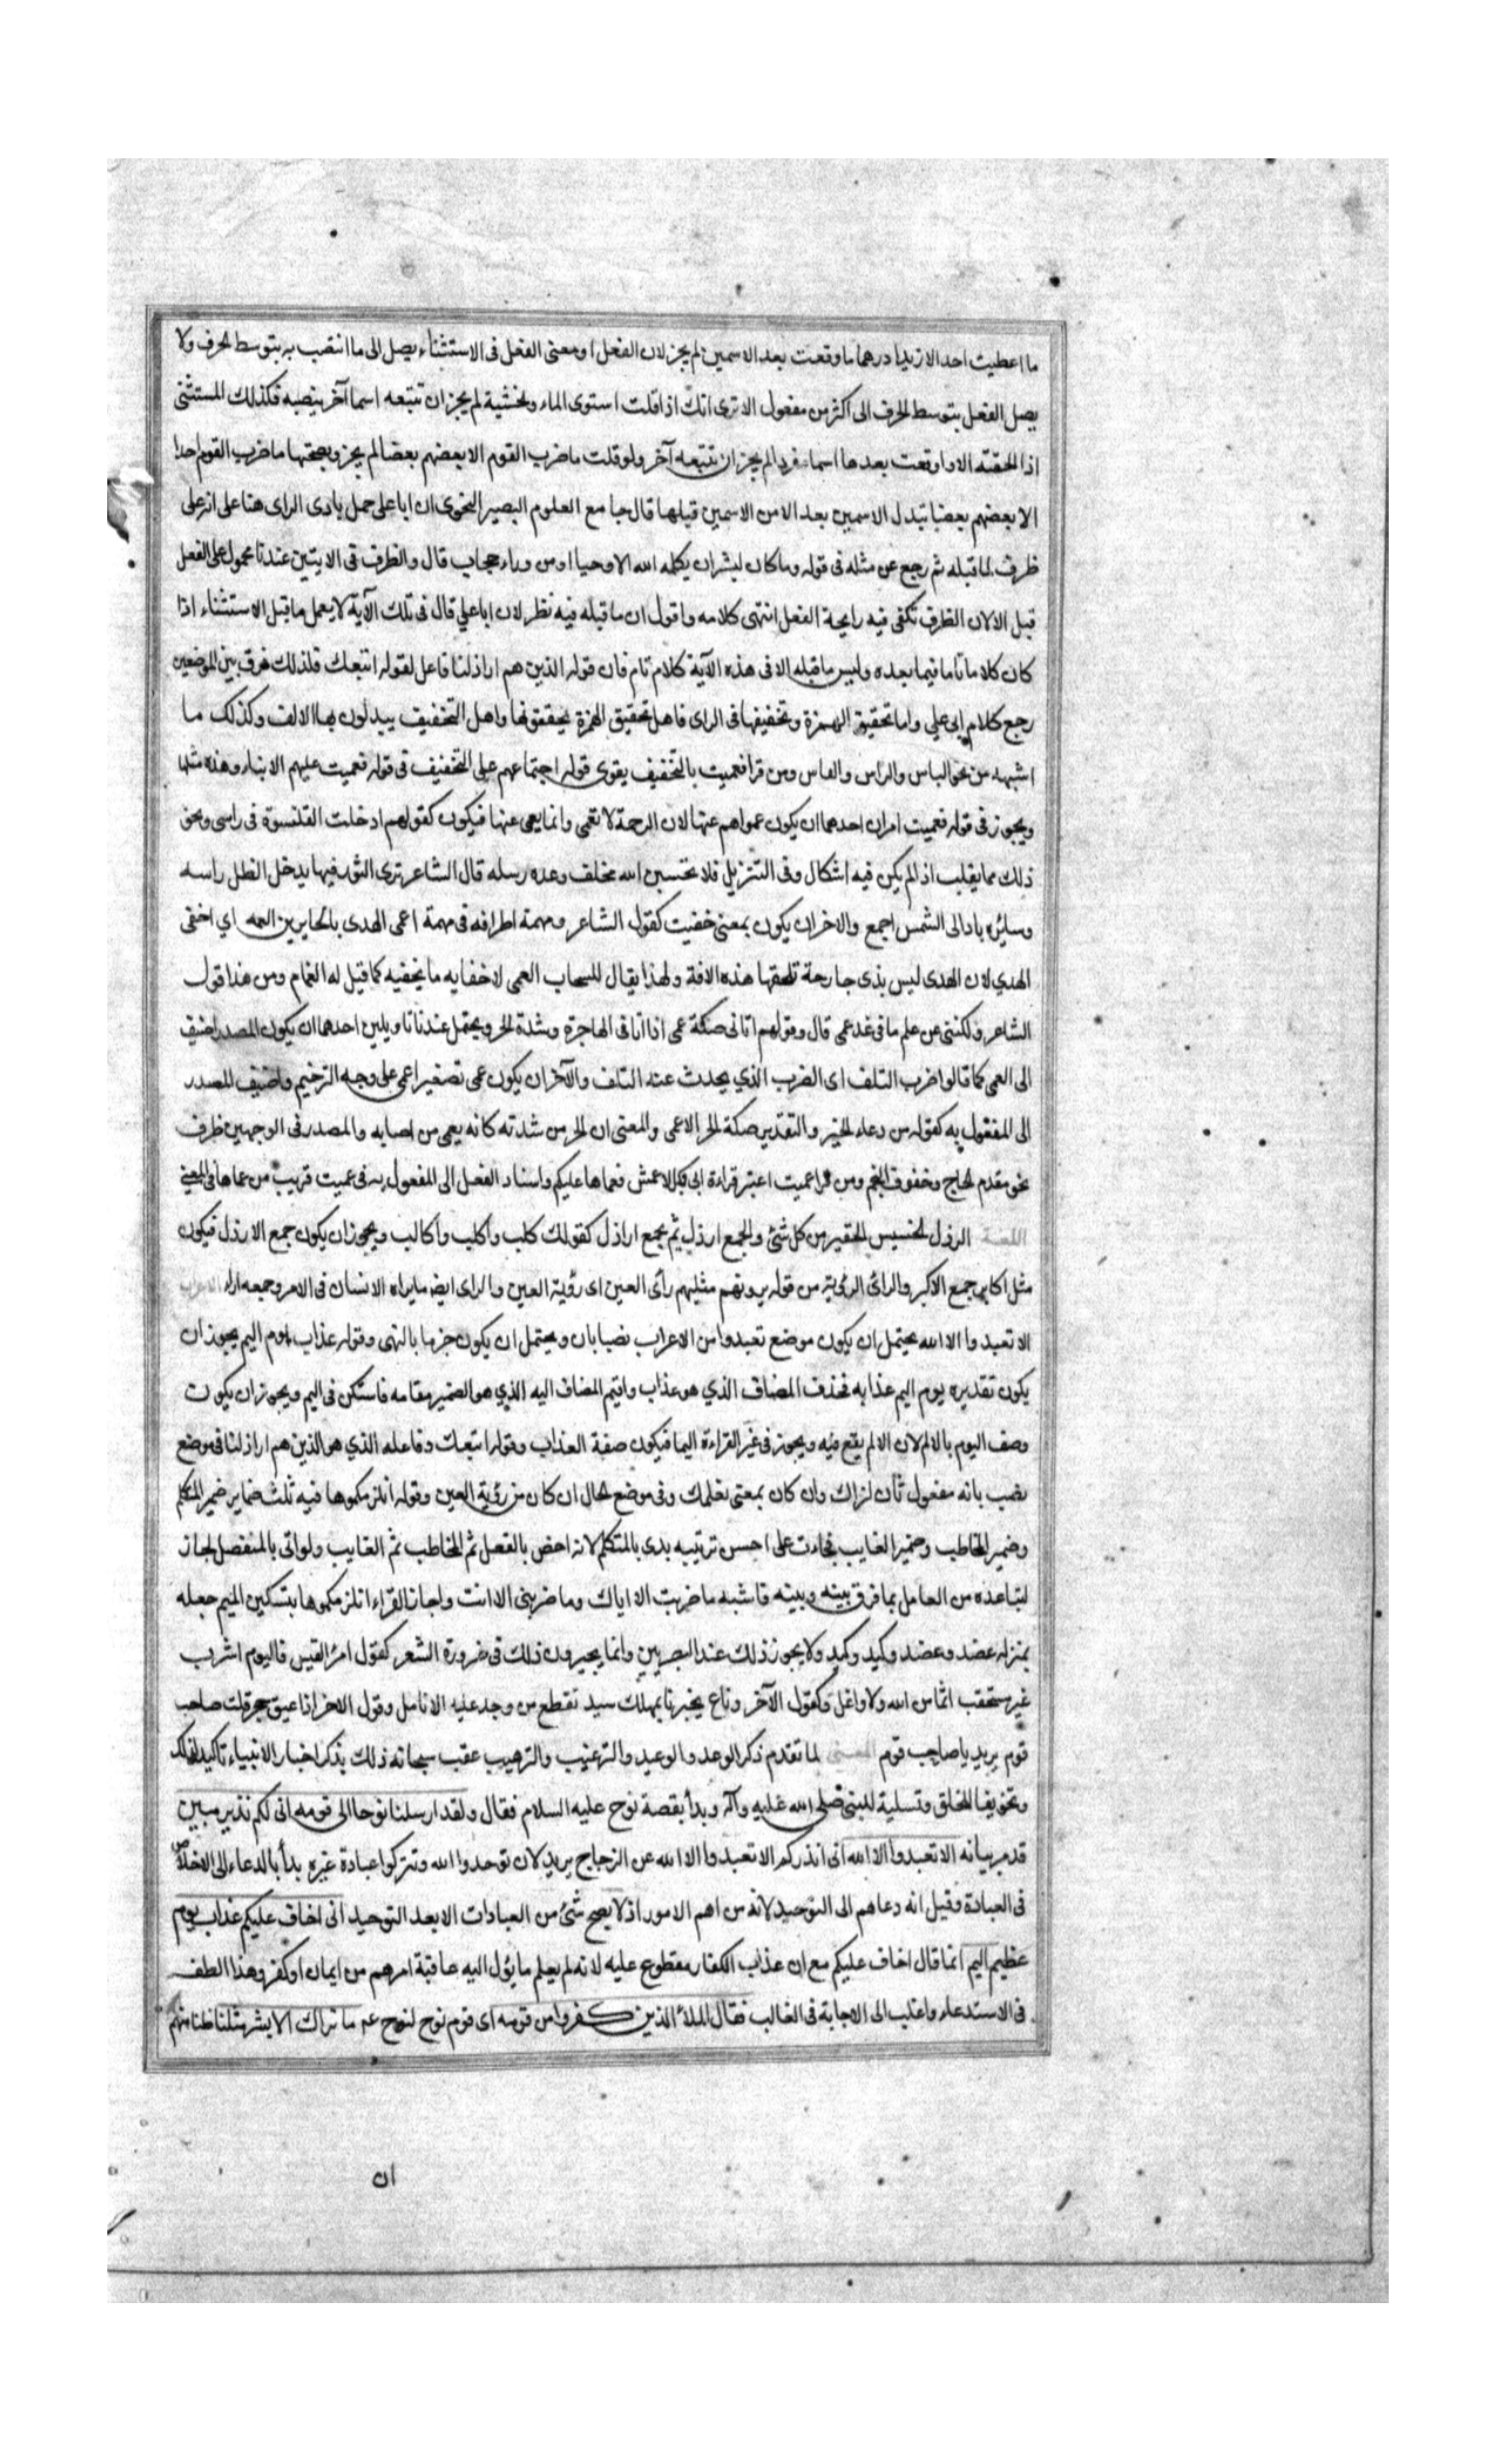 ما اعطيت احدا الا زيدا درهما ما وقعت بعد الا سمين لم يجز لان الفعل او معنى الفعل فى الاستثناء يصل الى ما انتصب به بتوسط الحرف ولا
يصل الفعل بتوسط الحرف الى اكثر من مفعول الا ترى انك اذا قلت استوى الماء والخشبة لم يجز ان تتبعه اسما آخر ينصبه فكذلك المستثنى
اذا الحقته الا واوقعت بعدها اسما مفردا لم يجز ان تتبعه آخر ولو قلت ما ضرب القوم الا بعضهم بعضا لم يجز وتصحيحها ما ضرب القوم احدا
الا بعضهم بعضا تبدل الاسمين بعد الا من الاسمين قبلها قال جامع العلوم البصير النحوى ان ابا على حمل بادى الراى هنا على انه على
ظرف لما قبله ثم رجع عن مثله فى قوله وما كان لبشر ان يكلمه الله الا وحيا او من وراء حجاب قال والظرف فى الايتين عندنا محمول على الفعل
قبل الا لان الظرف تكفى فيه رايحة الفعل انتهى كلامه واقول ان ما قبله فيه نظر لان ابا علي قال فى تلك الآية لا يعمل ما قبل الاستثناء اذا
كان كلاما تاما فيما بعده وليس ما قبله الا فى هذه الآية كلام تام فان قوله الذين هم اراذلنا فاعل لقوله اتبعك فلذلك فرق بين الموضعين
رجع كلام ابى علي واما تحقيق الهمزة وتخفيفها فى الراى فاهل تحقيق الهمزة يحققونها واهل التخفيف يبدلون بها الالف وكذلك ما
اشبهه من نحو الباس والراس والفاس ومن قرا فعميت بالتخفيف يقوى قوله اجتماعهم على التخفيف فى قوله فعميت عليهم الانباء وهذه مثلها
ويجوز فى قوله فعميت امران احدهما ان يكون عموا هم عنها لان الرحمة لا تعمى وانما يعمى عنها فيكون كقولهم ادخلت القلنسوة فى راسى ونحو
ذلك مما يقلب اذا لم يكن فيه اشكال وفى التنزيل فلا تحسبن الله مخلف وعده رسله قال الشاعر ترى الثور فيها يدخل الظل راسه
وسايره باد الى الشمس اجمع والاخر ان يكون بمعنى خفيت كقول الشاعر ومهمة اطرافه فى مهمة اعمى الهدى بالحايرين العمه اي اخفى
الهدي لان الهدى ليس بذى جارحة تلحقها هذه الافة ولهذا يقال للسحاب العمى لاخفايه ما يخفيه كما قيل له الغمام ومن هذا قول
الشاعر ولكننى عن علم ما فى غد عمى قال وقولهم اتانى صكة عمى اذا اتا فى الهاجرة وشدة الحر ويحتمل عندنا تاويلين احدهما ان يكون المصدر اضيف
الى العمى كما قالوا ضرب التلف اى الضرب الذي يحدث عنه التلف والآخر ان يكون عمى تصغير اعمى على وجه الترخيم واضيف المصدر
الى المفعول به كقوله من دعاء الخير والتقدير صكة الحر الاعمى والمعنى ان الحر من شدته كانه يعمى من اصابه والمصدر فى الوجهين ظرف
نحو مقدم الحاج وخفوق النجم ومن قرا عميت اعتبر قراءة ابى والاعمش فعماها عليكم واسناد الفعل الى المفعول به فى عميت قريب من عماها فى المعنى
اللغة الرذل الخسيس الحقير من كل شئ والجمع ارذل ثم يجمع اراذل كقولك كلب واكلب واكالب ويجوز ان يكون جمع الارذل فيكون
مثل اكابر جمع الاكبر والرائ الرؤية من قوله يرونهم مثليهم رأى العين اى رؤية العين والراى ايضا ما يراه الانسان فى الامر وجمعه اراء الاعراب
الا تعبدوا الا الله يحتمل ان يكون موضع تعبدوا من الاعراب نصبا بان ويحتمل ان يكون جزما بالنهى وقوله عذاب يوم اليم يجوز ان
يكون تقديره يوم اليم عذابه فحذف المضاف الذي هو عذاب واقيم المضاف اليه الذي هو الضمير مقامه فاستكن فى اليم ويجوز ان يكون
وصف اليوم بالالم لان الالم يقع فيه ويجوز فى غير القراءة اليما فيكون صفة العذاب وقوله اتبعك وفاعله الذي هو الذين هم اراذلنا فى موضع
نصب بانه مفعول ثان لنراك وان كان بمعنى نعلمك وفى موضع الحال ان كان من رؤية العين وقوله انلزمكموها فيه ثلث ضماير ضمير المتكلم
وضمير المخاطب وضمير الغايب فجاءت على احسن ترتيبه بدى بالمتكلم لانه اخص بالفعل ثم المخاطب ثم الغايب ولو اتى بالمنفصل لجاز
لتباعده من العامل بما فرق بينه وبينه فاشبه ما ضربت الا اياك وما ضربنى الا انت واجاز الفراء انلزمكموها بتسكين الميم جعله
بمنزلة عضد وعضد وكيد وكبد ولا يجوز ذلك عند البصريين وانما يجيزون ذلك فى ضرورة الشعر كقول امرئ القيس فاليوم اشرب
غير مستحقب اثما من الله ولا واغل وكقول الآخر وناع يخبرنا بمهلك سيد تقطع من وجد عليه الانامل وقول الاخر اذا اعوججن قلت صاحب
قوم يريد يا صاحب قوم المعنى لما تقدم ذكر الوعد والوعيد والترغيب والترهيب عقب سبحانه ذلك بذكر اخبار الانبياء تاكيدا لذلك
وتخويفا للخلق وتسلية للنبى صلى الله عليه وآله وبدأ بقصة نوح عليه السلام فقال ولقد ارسلنا نوحا الى قومه انى لكم نذير مبين
قد مر بيانه الا تعبدوا الا الله انى انذركم الا تعبدوا الا الله عن الزجاج يريد لان توحدوا الله وتتركوا عبادة غيره بدأ بالدعاء الى الاخلاص
فى العبادة وقيل انه دعاهم الى التوحيد لانه من اهم الامور اذ لا يصح شئ من العبادات الا بعد التوحيد انى اخاف عليكم عذاب يوم
عظيم اليم انما قال اخاف عليكم مع ان عذاب الكفار مقطوع عليه لانه لم يعلم ما يؤل اليه عاقبة امرهم من ايمان او كفر وهذا الطف
فى الاستدعاء واغلب الى الاجابة فى الغالب فقال الملأ الذين كفروا من قومه اى قوم نوح لنوح عم ما نراك الا بشرا مثلنا ظنا منهم
ان